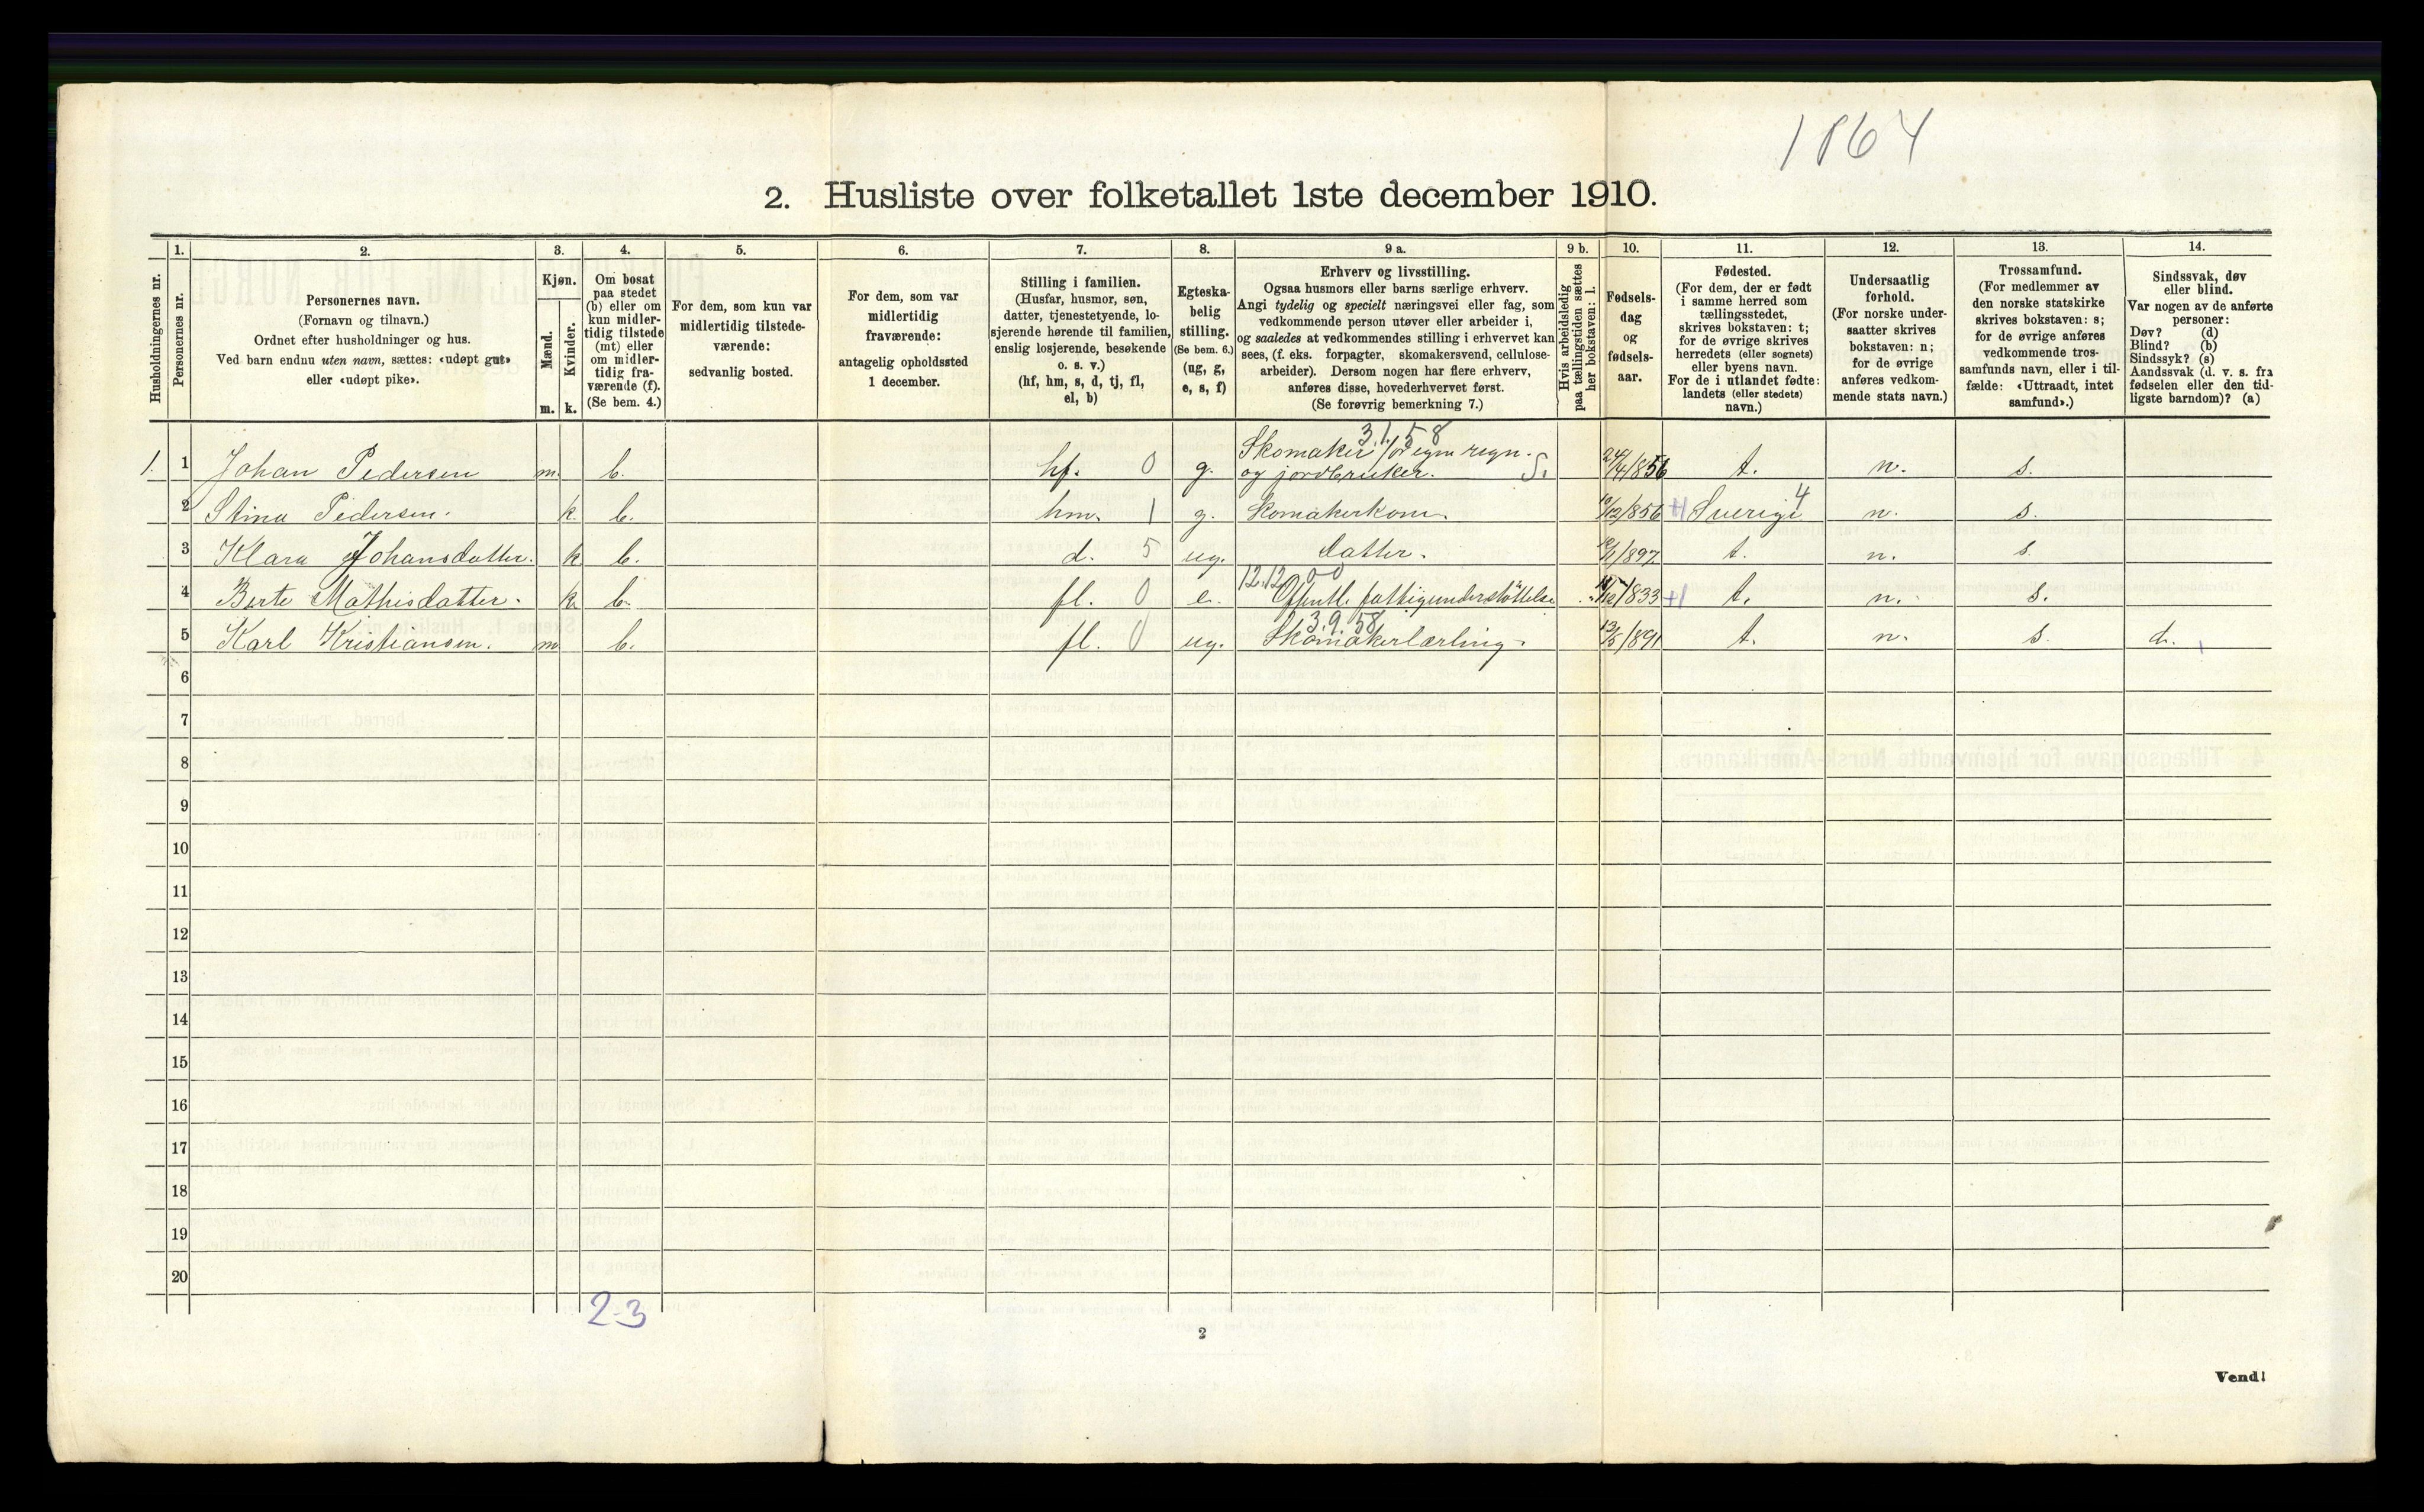 1864
2. Husliste over folketallet 1ste december 1910.
Husholdningernes nr.
1.
Personernes nr.
2.
Personernes navn.
(Fornavn og tilnavn.)
Ordnet efter husholdninger og hus.
Ved barn endnu uten navn, sættes: «udøpt gut»
eller «udøpt pike».
3.
Kjøn.
Mænd.
Kvinder.
m.
k.
4.
Om bosat
paa stedet
(b) eller om
kun midler-
tidig tilstede
(mt) eller
om midler-
tidig fra-
værende (f).
(Se bem. 4.)
5.
For dem, som kun var
midlertidig tilstede-
værende:
sedvanlig bosted.
6.
For dem, som var
midlertidig
fraværende:
antagelig opholdssted
1 december.
7.
Stilling i familien.
(Husfar, husmor, søn,
datter, tjenestetyende, lo-
sjerende hørende til familien,
enslig losjerende, besøkende
o. s. v.)
(hf, hm, s, d, tj, fl,
el, b)
8.
Egteska-
belig
stilling.
(Se bem. 6.)
(ug, g,
e, s, f)
9 a.
Erhverv og livsstilling.
Ogsaa husmors eller barns særlige erhverv.
Angi tydelig og specielt næringsvei eller fag, som
vedkommende person utøver eller arbeider i,
og saaledes at vedkommendes stilling i erhvervet kan
sees, (f. eks. forpagter, skomakersvend, cellulose-
arbeider). Dersom nogen har flere erhverv,
anføres disse, hovederhvervet først.
(Se forøvrig bemerkning 7.)
9 b.
Hvis arbeidsledig
paa tællingstiden sættes
her bokstaven: l.
10.
Fødsels-
dag
og
fødsels-
aar.
11.
Fødested.
(For dem, der er født
i samme herred som
tællingsstedet,
skrives bokstaven: t;
for de øvrige skrives
herredets (eller sognets)
eller byens navn.
For de i utlandet fødte:
landets (eller stedets)
navn.)
12.
Undersaatlig
forhold.
(For norske under-
saatter skrives
bokstaven: n;
for de øvrige
anføres vedkom-
mende stats navn.)
13.
Trossamfund.
(For medlemmer av
den norske statskirke
skrives bokstaven: s;
for de øvrige anføres
vedkommende tros-
samfunds navn, eller i til-
fælde: «Uttraadt, intet
samfund».)
14.
Sindssvak, døv
eller blind.
Var nogen av de anførte
personer:
Døv? (d)
Blind? (b)
Sindssyk? (s)
Aandssvak (d. v. s. fra
fødselen eller den tid-
ligste barndom)? (a)
3.1.58
Skomaker for egen regn.
1. 1 Johan Pedersen m. b. hf. 0 g. og jordbruker. S. 24/4/856 t. n. s.
2 Stina Pedersen. k. b. hm. 1 g. Skomakerkone. 10/12/856 Sverige 4 n. s.
3 Klara Johansdatter. k b. d. 5 ug. datter. /1/897 t. n. s.
12.12.00
4 Berte Mathisdatter. k. b. fl. 0 e. Offentl. fattigunderstöttelse /12/833 t. n. s.
3.9.58
5 Karl Kristiansen. m b. fl. 0 ug. Skomakerlærling. 13/5/891 t. n. s. d.
6
7
8
9
10
11
12
13
14
15
16
17
18
19
20
2-3
2
Vend!